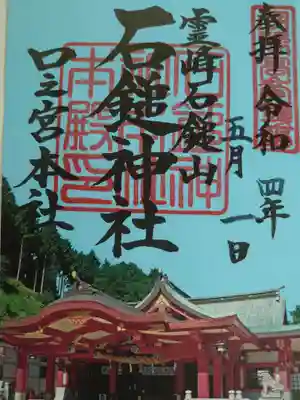 奉拝 令和
四年
五月
一日
霊峰石鎚山
石鎚神社
口之宮本社
本殿印